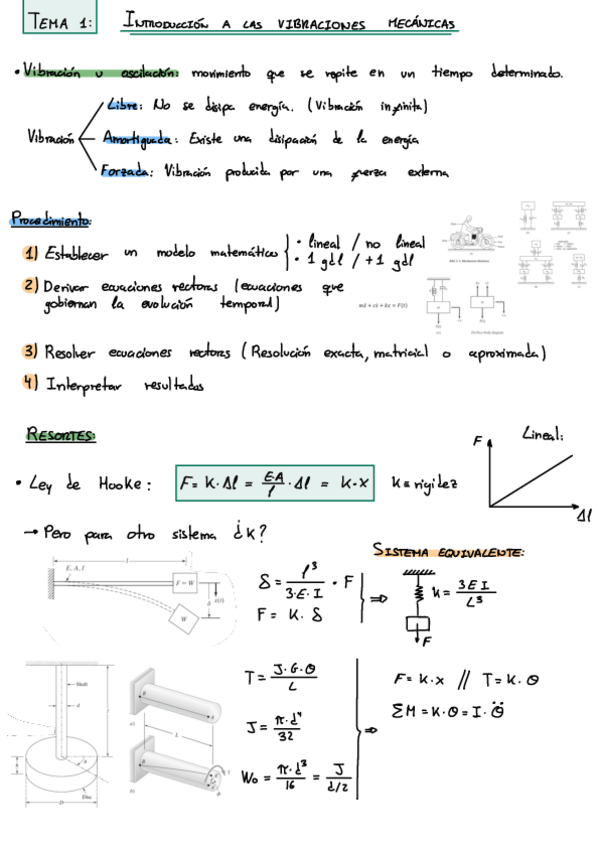 TEMA 1: INTRODUCCIÓN A LAS VIBRACIONES MECÁNICAS
• Vibración u oscilación: movimiento que se repite en un tiempo determinado.
Vibración
Libre: No se disipa energía. (Vibración infinita)
Amortiguada: Existe una disipación de la energía
Forzada: Vibración producida por una fuerza externa
Procedimiento:
1) Establecer un modelo matemático
• lineal / no lineal
• 1 gdl / +1 gdl
2) Derivar ecuaciones rectores (ecuaciones que
gobiernan la evolución temporal)
mẍ + cẋ + kx = F(t)
3) Resolver ecuaciones rectores (Resolución exacta, matricial o aproximada)
4) Interpretar resultados
RESORTES:
F
Lineal:
Δl
• Ley de Hooke: F = K·Δl = E·A/l · Δl = K·x K ≡ rigidez
→ Pero para otro sistema ¿k?
SISTEMA EQUIVALENTE:
l
E, A, I
F = W
δ
x(t)
W
δ = l³/3·E·I · F
F = K·δ
⇒
k = 3EI/L³
F
Shaft
d
l
Disc
D
a)
L
b)
T = J·G·θ/L
J = π·d⁴/32
W₀ = π·d³/16 = J/d/2
⇒
F = K·x // T = K·θ
ΣM = K·θ = I·θ̈